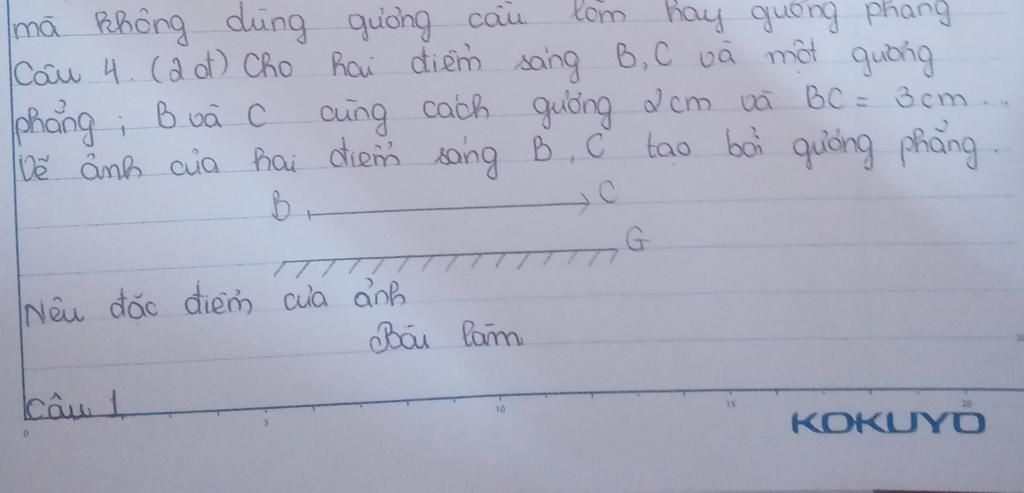 mà không dùng gương cầu lõm hay gương phẳng
Câu 4. (2đ) Cho hai điểm sáng B, C và một gương
phẳng; B và C cùng cách gương 2cm và BC = 3cm.
Vẽ ảnh của hai điểm sáng B, C tạo bởi gương phẳng.
B C
G
Nêu đặc điểm của ảnh
Bài làm
Câu 1
0 5 10 15 20
KOKUYO